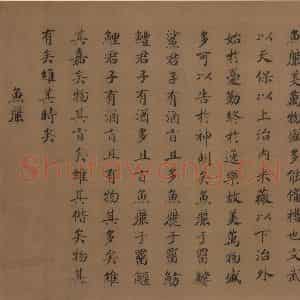 魚麗美萬物盛多能備禮也文武
以天保以上治內采薇以下治外
始於憂勤終於逸樂故美萬物盛
多可以告於神明矣魚麗于罶鱨
鯊君子有酒旨且多魚麗于罶魴
鱧君子有酒多且旨魚麗于罶鰋
鯉君子有酒旨且有物其多矣維
其嘉矣物其旨矣維其偕矣物其
有矣維其時矣
魚麗